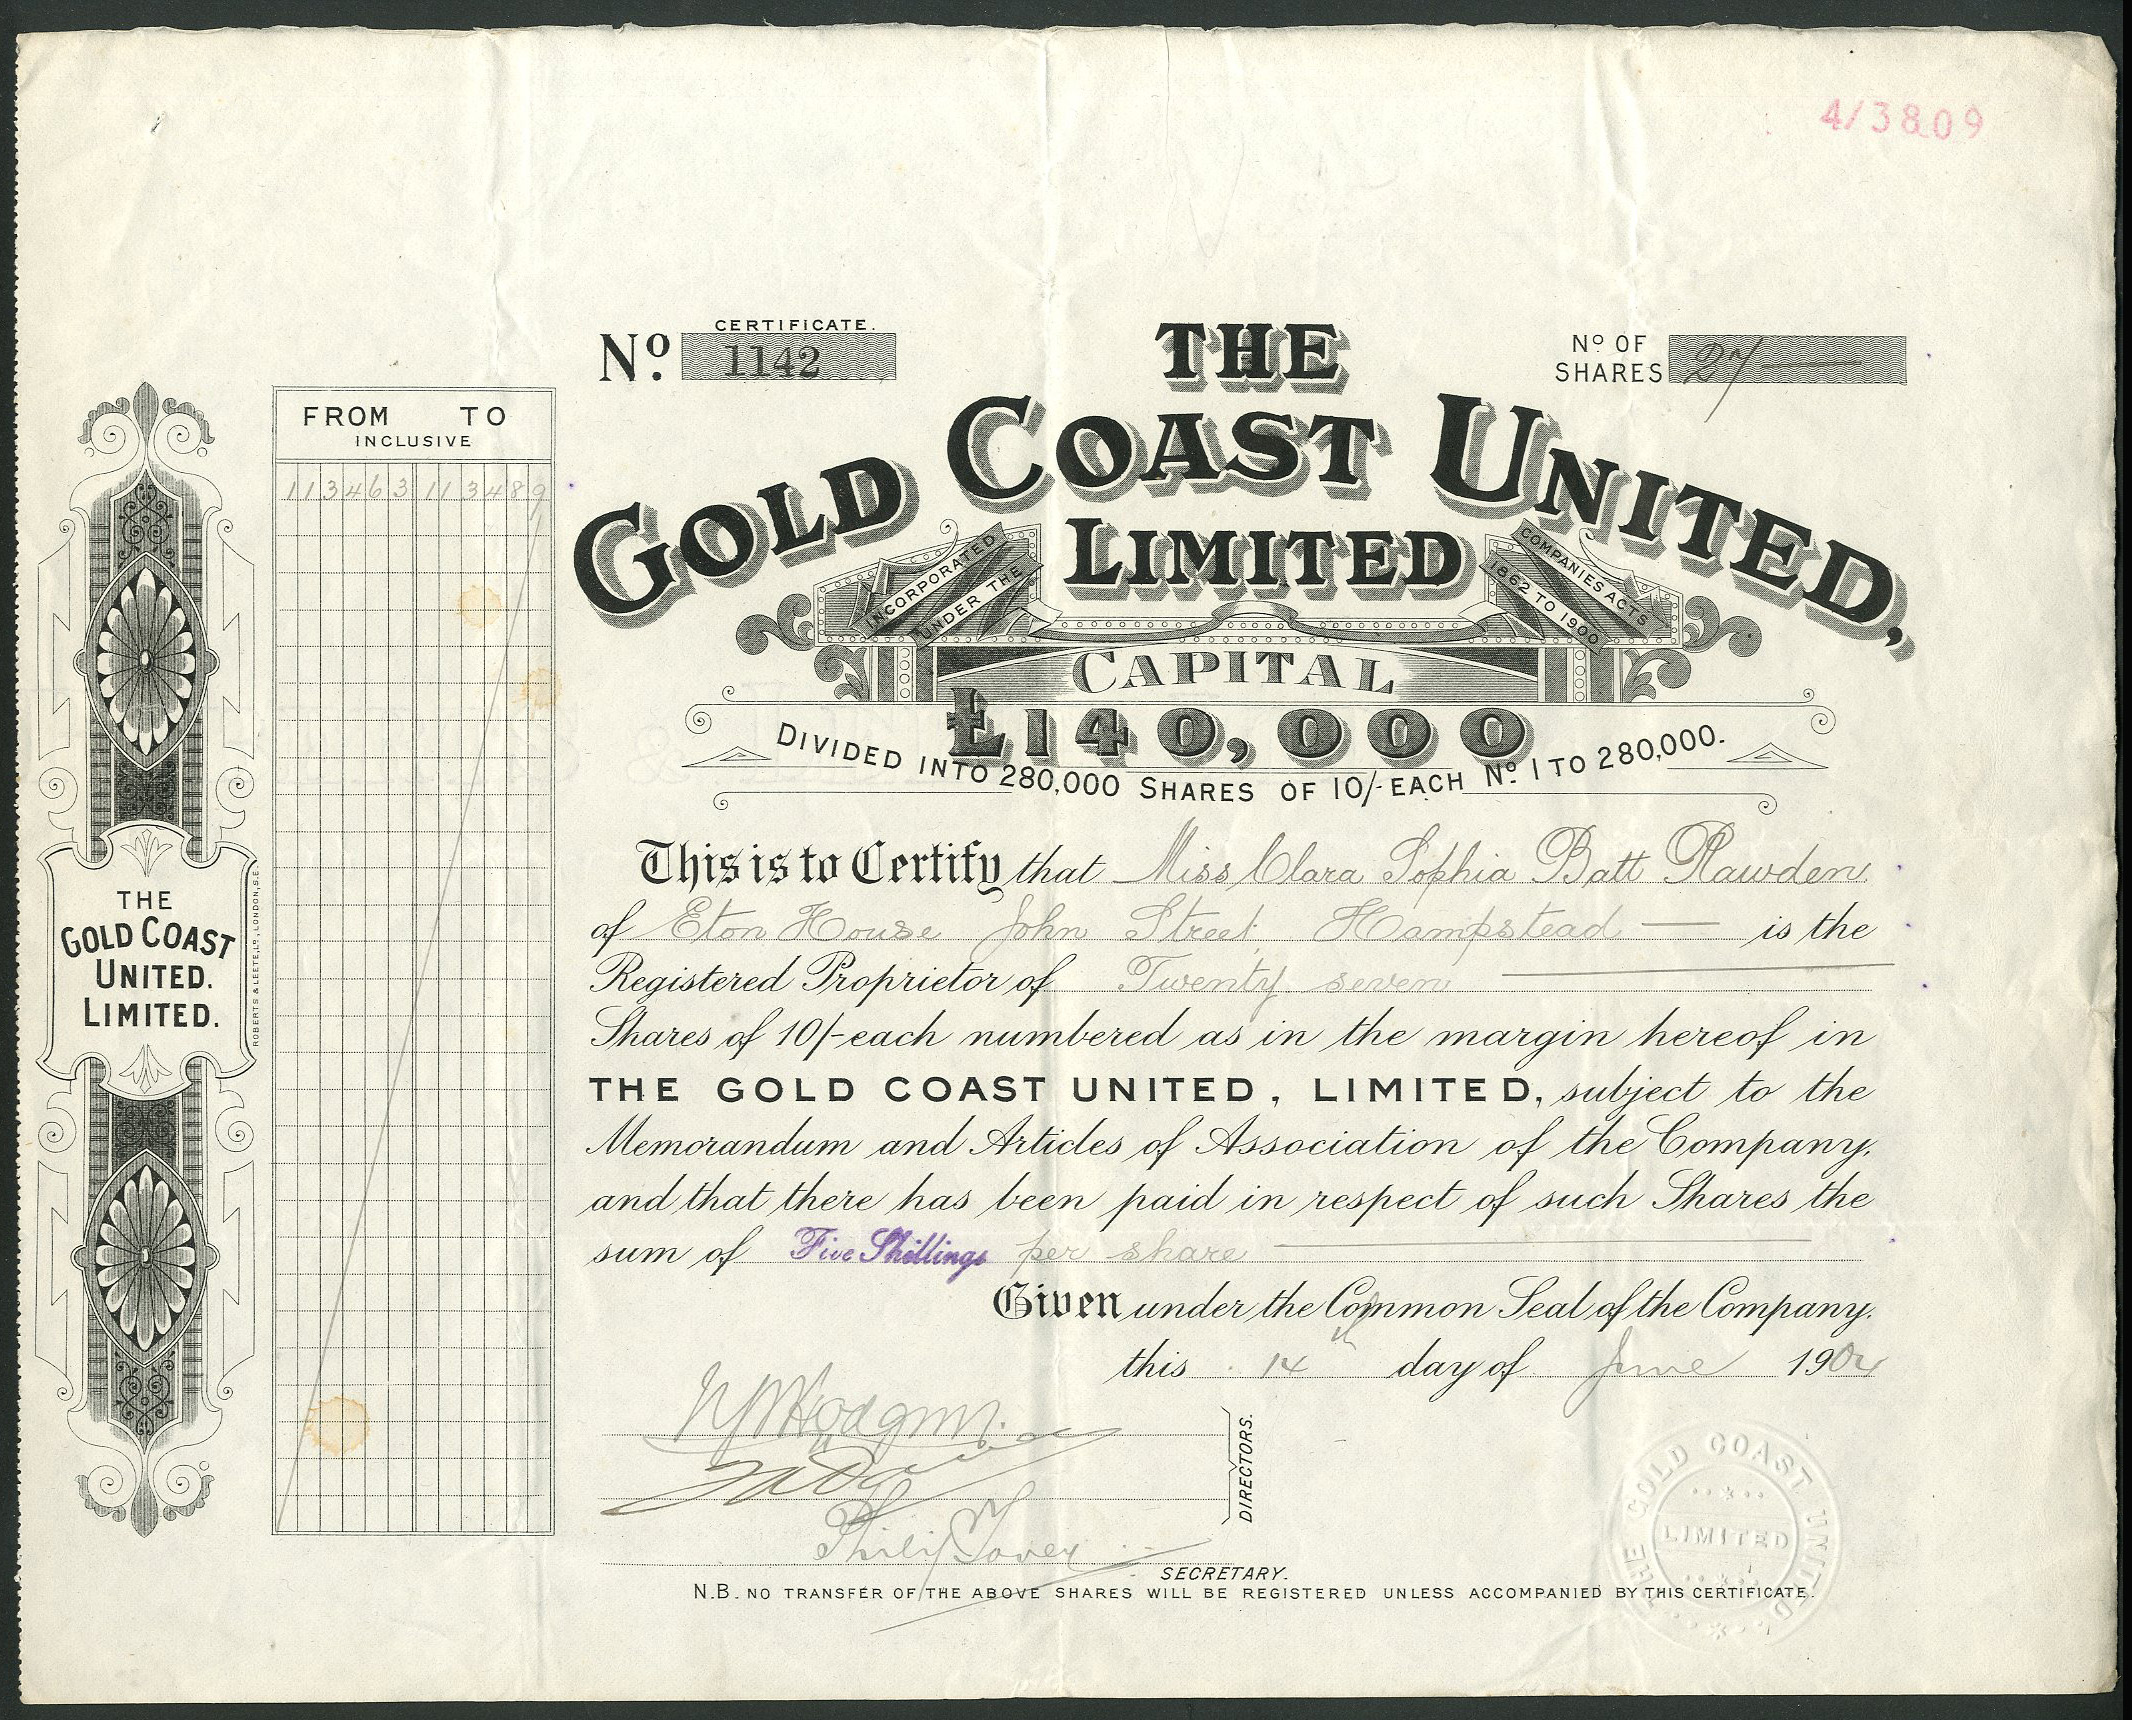 4/3809
CERTIFICATE.
Nº. 1142
Nº OF SHARES 27
THE
GOLD COAST UNITED,
LIMITED
INCORPORATED UNDER THE
COMPANIES ACTS 1862 TO 1900
CAPITAL
£140,000
DIVIDED INTO 280,000 SHARES OF 10/- EACH Nº 1 TO 280,000.
FROM TO
INCLUSIVE
113463 113489
THE
GOLD COAST
UNITED.
LIMITED.
ROBERTS & LEETE, LD, LONDON, S.E.
This is to Certify that Miss Clara Sophia Batt Rawden
of Eton House John Street Hampstead is the
Registered Proprietor of Twenty seven
Shares of 10/- each numbered as in the margin hereof in
THE GOLD COAST UNITED, LIMITED, subject to the
Memorandum and Articles of Association of the Company,
and that there has been paid in respect of such Shares the
sum of Five Shillings per share
Given under the Common Seal of the Company.
this 14th day of June 1904
DIRECTORS.
Philip Tovey
SECRETARY.
N.B. NO TRANSFER OF THE ABOVE SHARES WILL BE REGISTERED UNLESS ACCOMPANIED BY THIS CERTIFICATE.
THE GOLD COAST UNITED
LIMITED